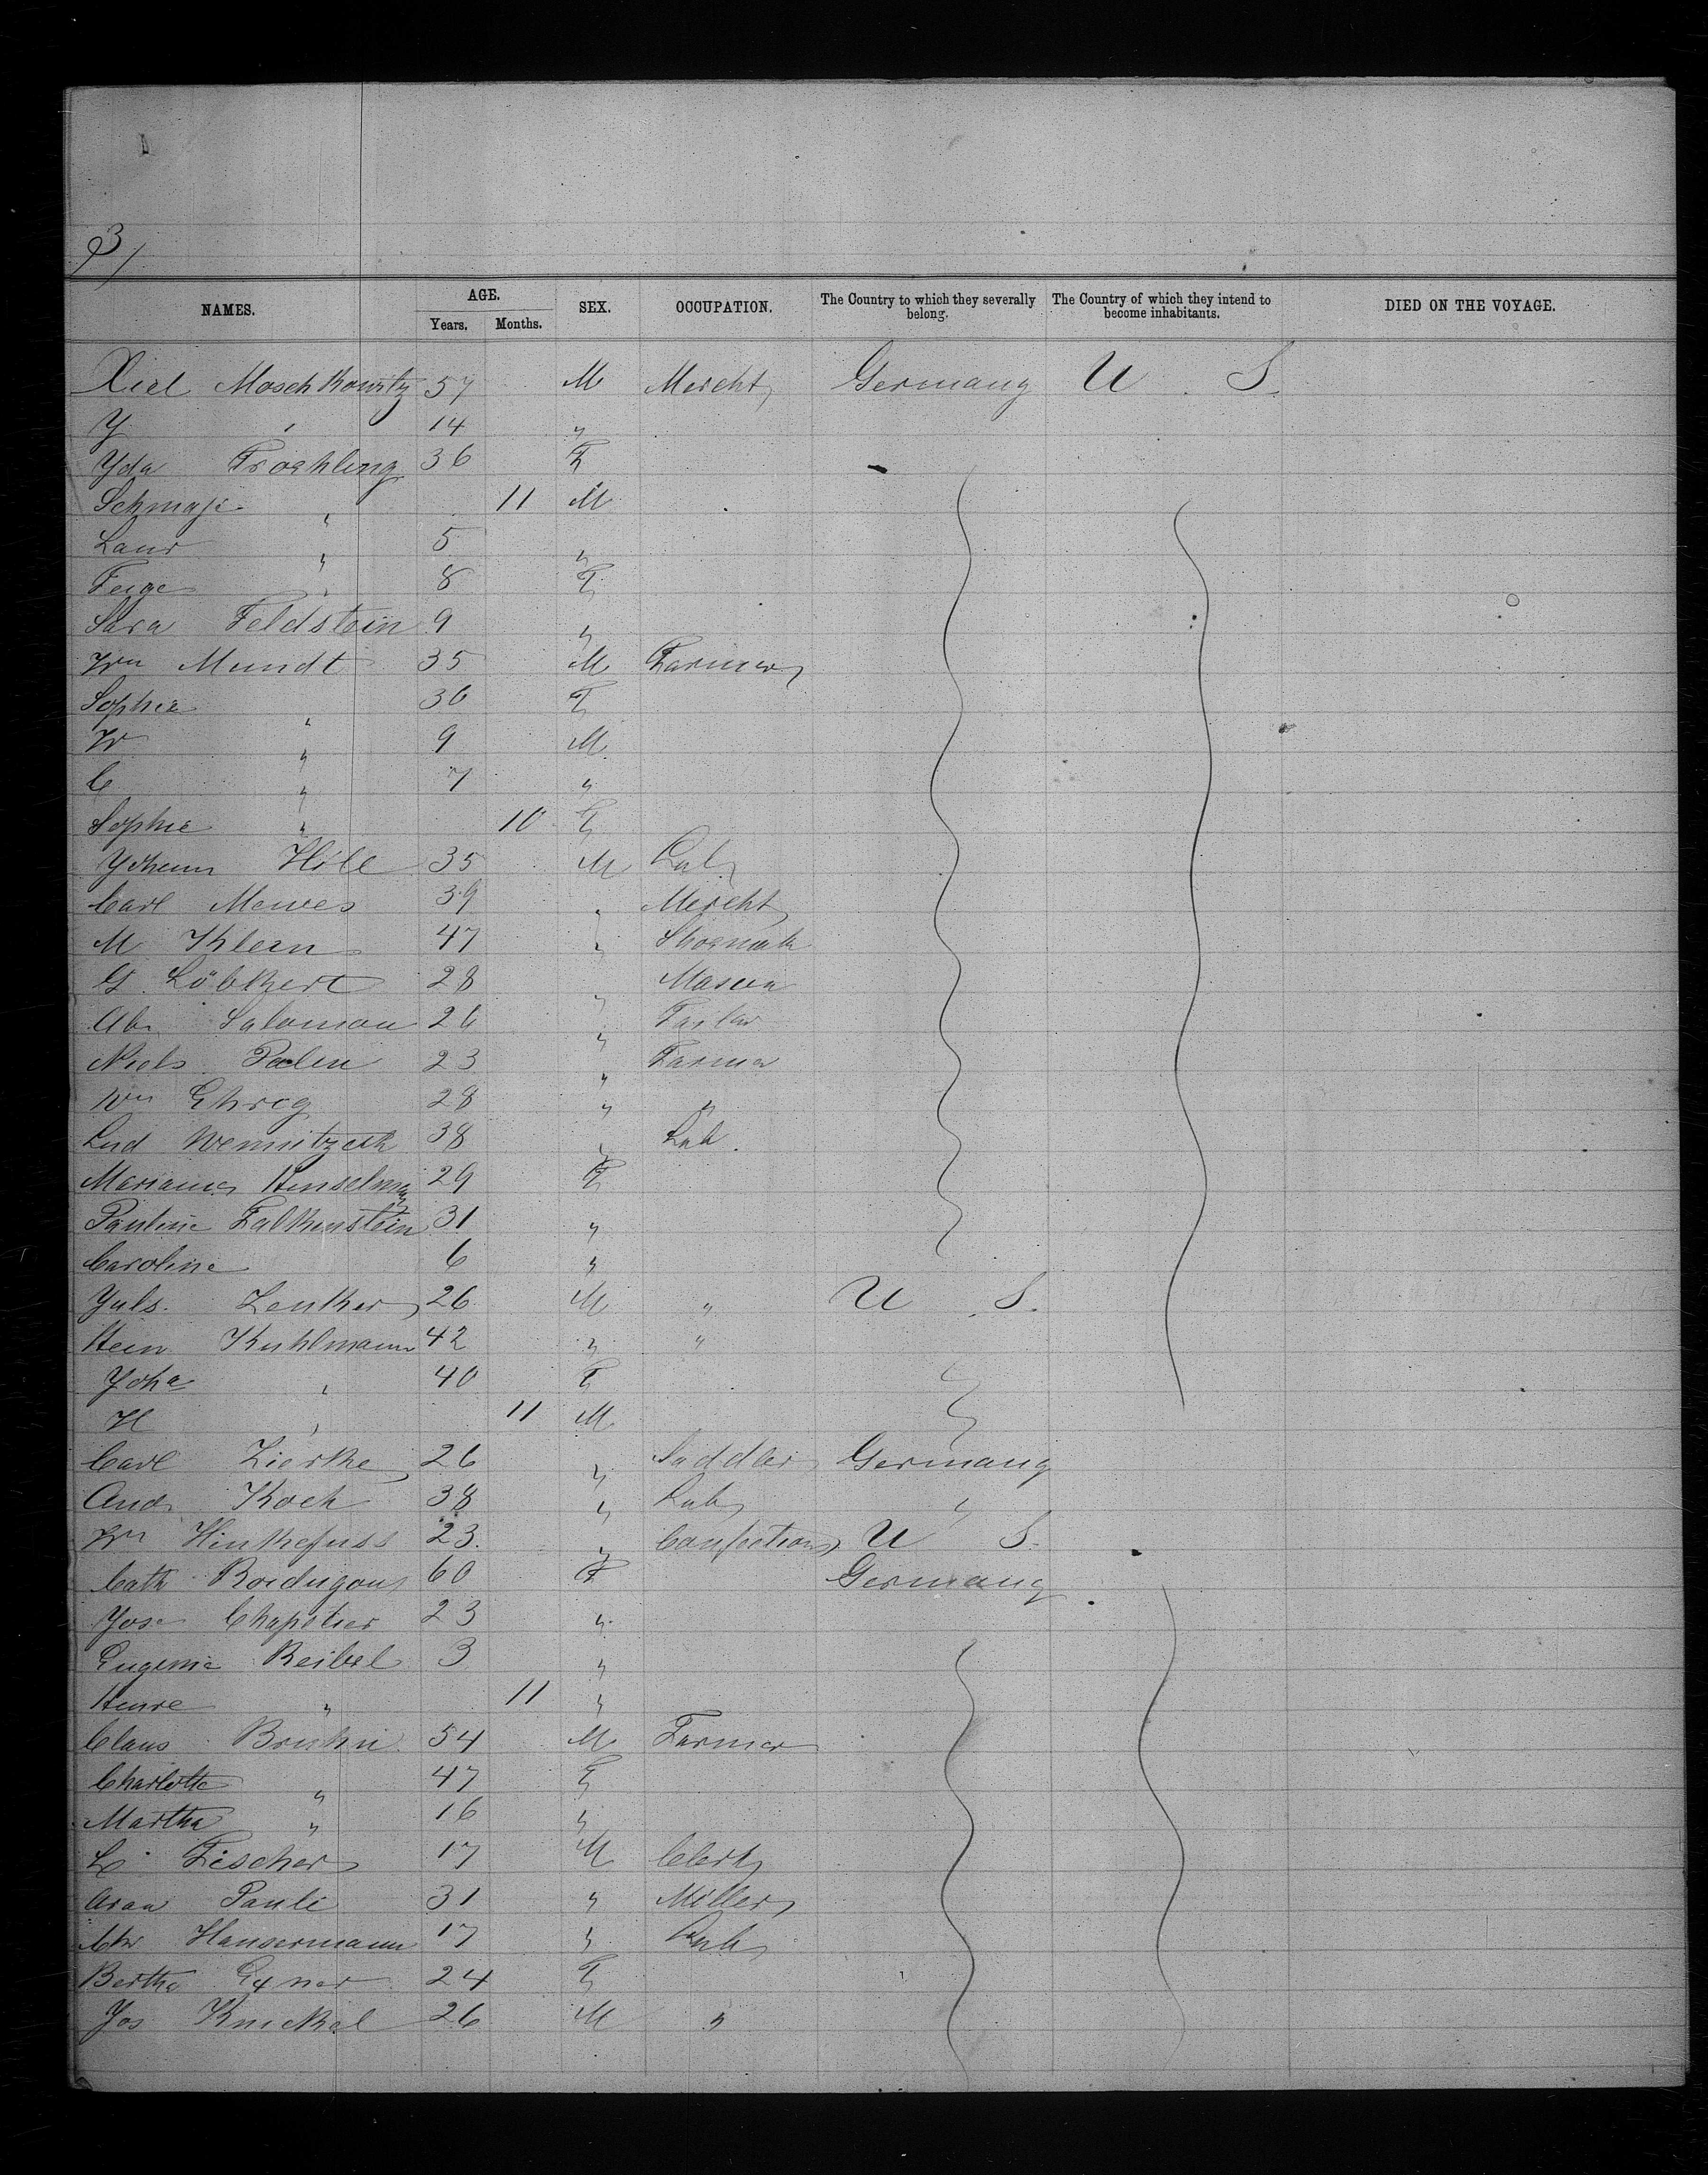 3/
NAMES. AGE. Years. Months. SEX. OCCUPATION. The Country to which they severally belong. The Country of which they intend to become inhabitants. DIED ON THE VOYAGE.
Xiel Moschkowitz 57 M Mercht Germany U. S.
Y " 14 "
Yda Froehling 36 F
Schmaje " 11 M
" 5 "
Feige " 8 F
Sara Feldstein 9 "
Wm Mundt 35 M Farmer
Sophie " 36 F
W " 9 M
C " 7 "
Sophie " 10 F
Johann 35 M Lab
Carl Mewes 39 " Mercht
M Klein 47 " Shoemak
G. Löbkert 28 " Mason
Ab. Salomon 26 " Tailor
Niels Palen 23 " Farmer
Wm Ehrig 28 " "
Lud 38 " Lab.
Marianna Hinselman 29 F
Pauline Falkenstein 31 "
Caroline 6 "
Juls. Zenker 26 M " U. S.
Hein Kuhlmann 42 " "
Joha " 40 F
H " 11 M
Carl Zierke 26 " Saddler Germany
And. Koch 38 " Lab "
Wm Hinkefuss 23. " Confection U S.
Cath 60 F Germany
Jose 23 "
Eugenie Reibel 3 "
Henre " 11 "
Claus Bruhn 54 M Farmer
Charlotte " 47 F
Martha " 16 "
L. Fischer 17 M Clerk
Pauli 31 " Miller
Chr Hausermann 17 " Lab
Bertha Exner 24 F
Jos Knickel 26 M "